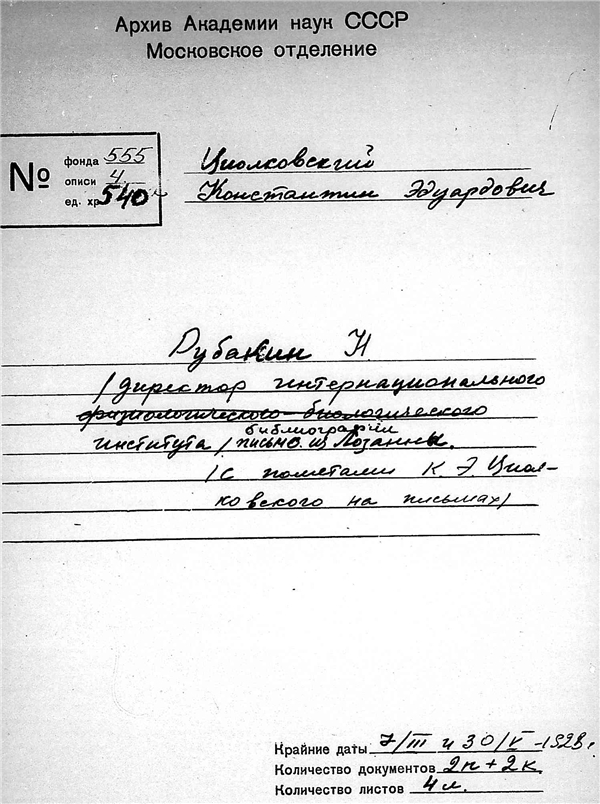 Архив Академии наук СССР
Московское отделение
№
фонда 555
описи 4
ед. хр. 540
Циолковский
Константин Эдуардович
Рубакин Н
/директор интернационального
физиологического-биологического
библиографии
института/ письмо. из Лозанны.
/с пометами К. Э. Циол-
ковского на письмах/
Крайние даты 7/III и 30/V-1928 г
Количество документов 2п+2к.
Количество листов 4 л.